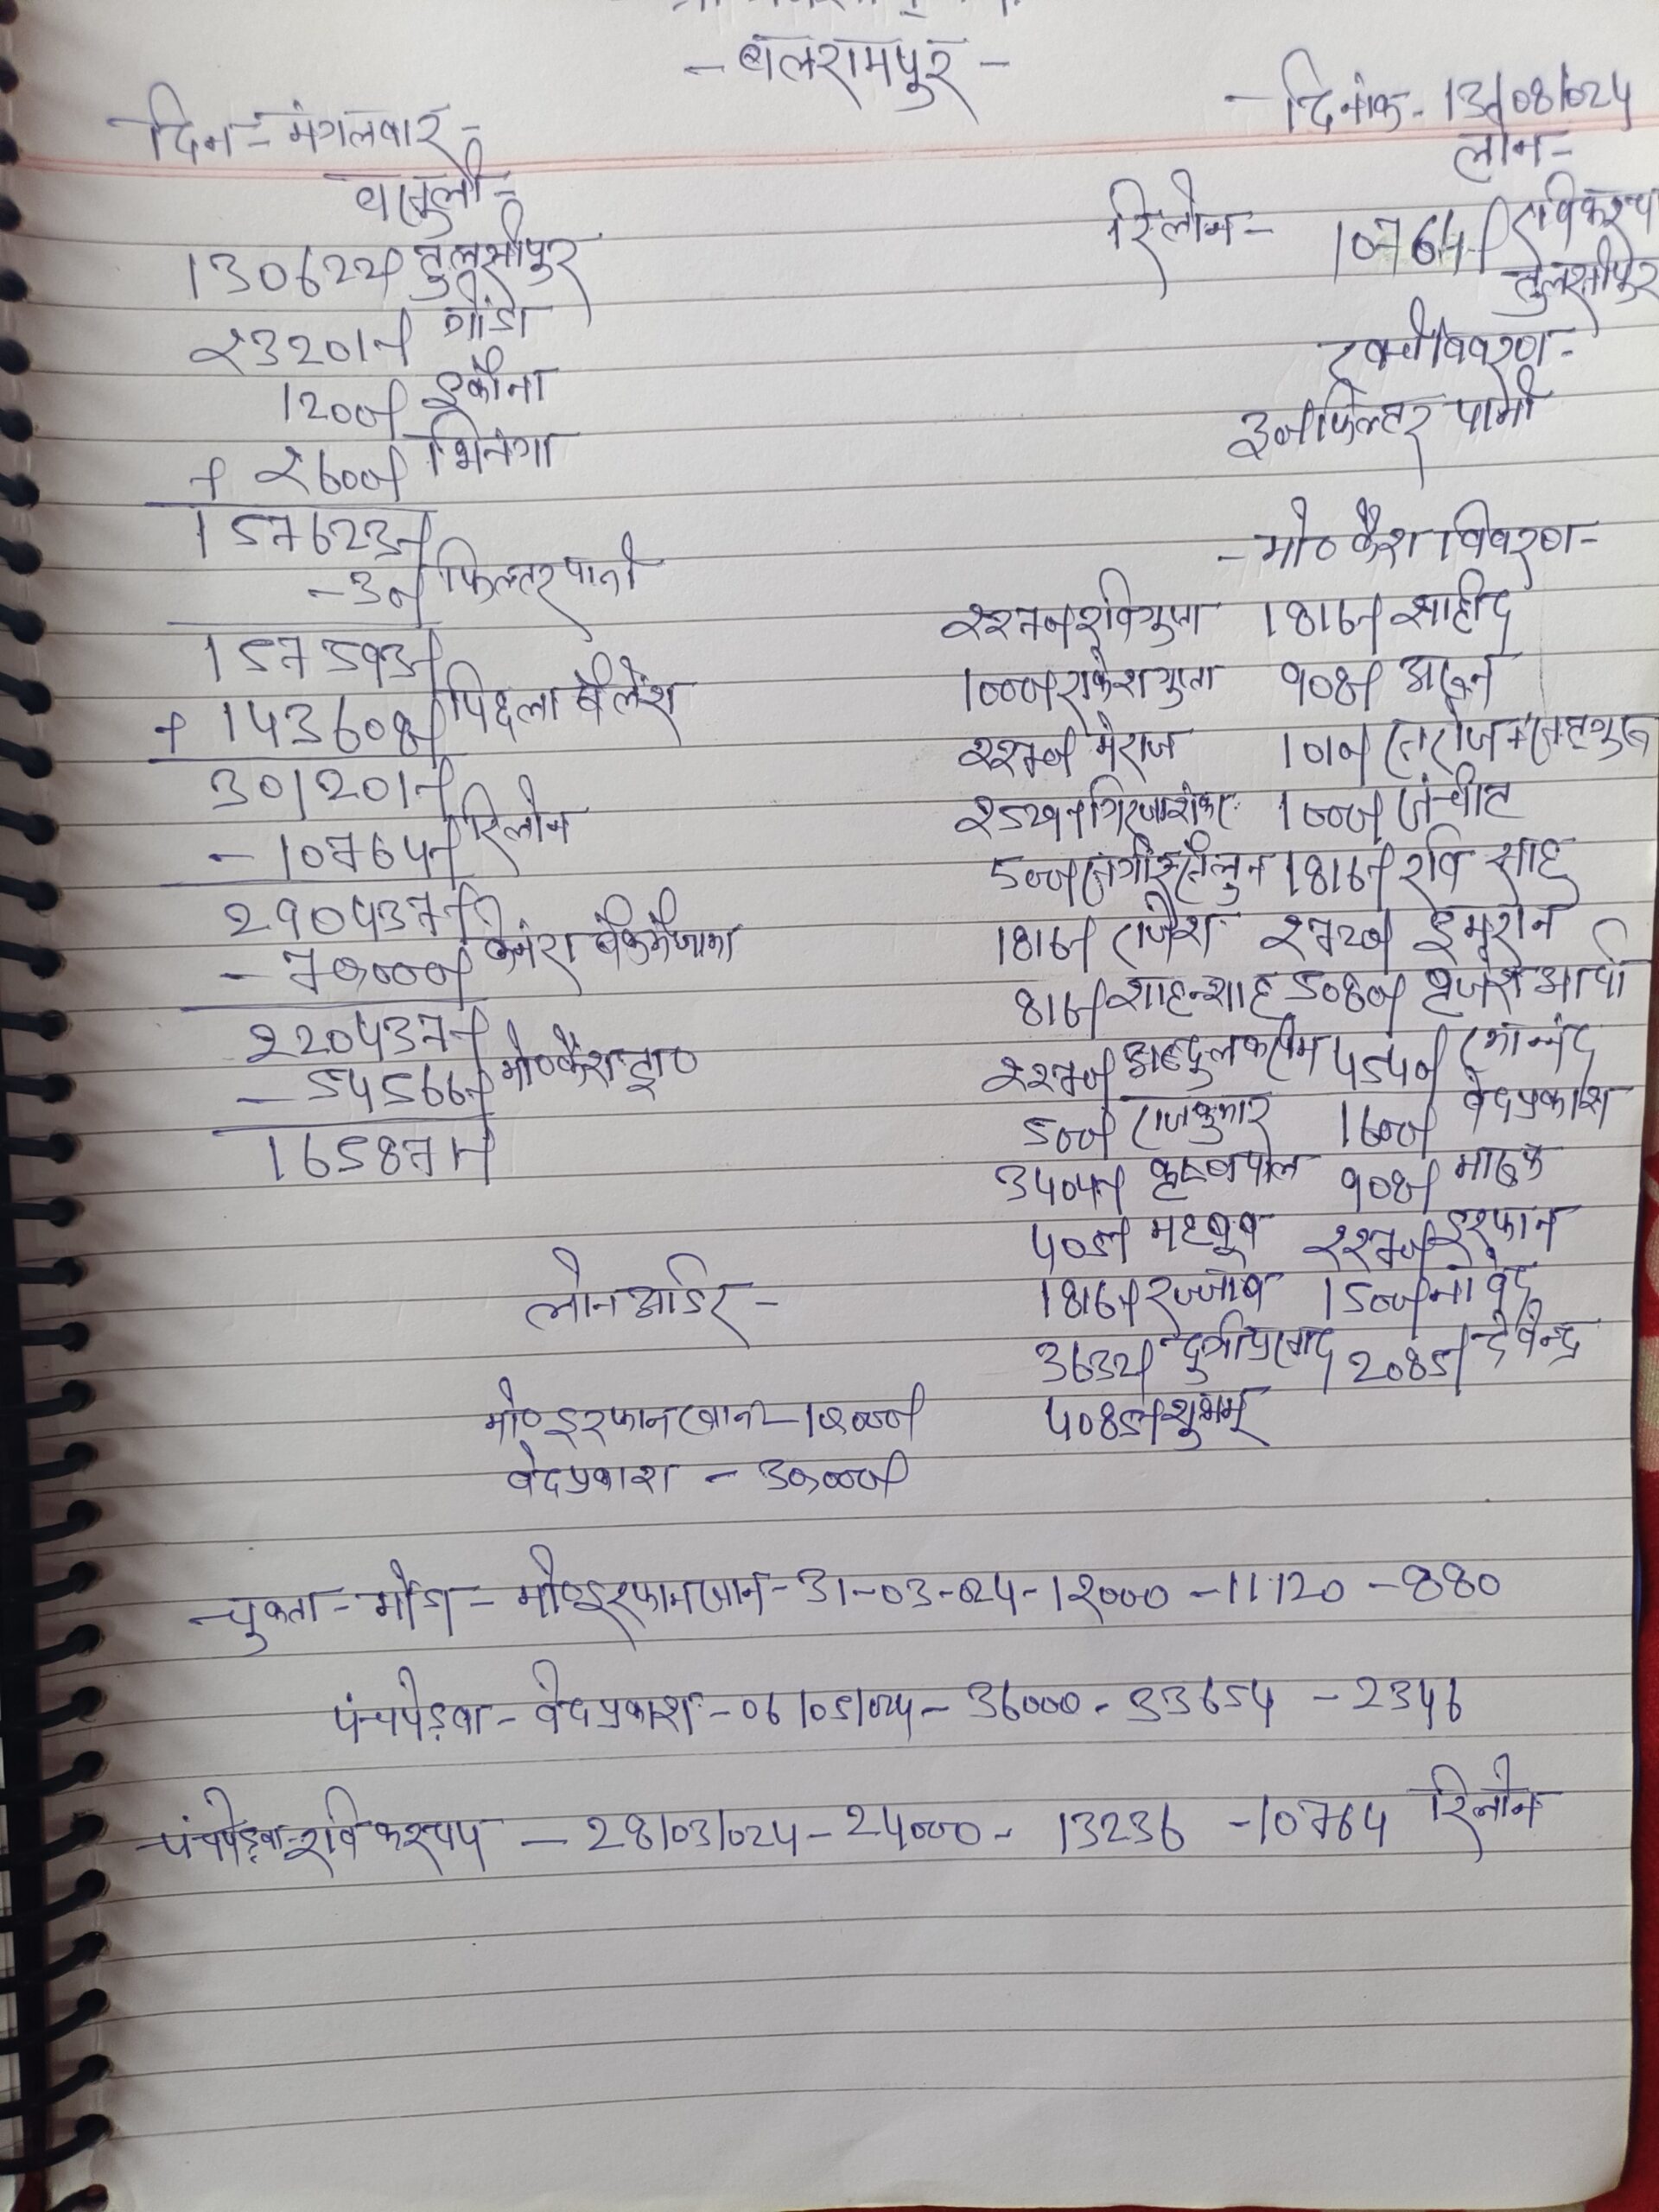 - बलरामपुर -
दिन = मंगलवार - - दिनांक - 13/08/024
वसुली = लोन =
130622/ तुलसीपुर रिलोन - 10764/ रविकश्यप
तुलसीपुर
23201/ गोंडा
1200/ इकौना खर्चा विवरण -
+ 2600/ भिनगा 30/ फिल्टर पानी
157623/
- 30/ फिल्टर पानी - मो० कैश विवरण -
157593/ 2270/ रवि गुप्ता 1816/ शाहीद
+ 143608/ पिछला बैलेंश 1000/ राकेश गुप्ता 908/
301201/ 2270/ मेराज 1010/
- 10764/ रिलोन गिरजाशंकर 1000/
290437/ 500/ 1816/ रवि साहु
- 70,000/ केनरा बैंक मे जमा 1816/ राजेश 2720/ इमरान
220437/ 816/ शाहन्शाह 5080/ ब्रजेश आर्या
- 54566/ मो० कैश द्वा० 2270/ अब्दुल कलीम 4540/
165871/ 500/ राजकुमार 1600/ वेदप्रकाश
3404/ कृष्णपाल 908/
405/ महबूब 2270/ इरफान
लोन आर्डर - 1816/ रज्जाब 1500/ नावेद
3632/ दुर्गाप्रसाद 2085/ देवेन्द्र
मो० इरफान खान - 12000/ 4085/ शुभम्
वेदप्रकाश - 30,000/
चुकता - गोंडा - मो० इरफान खान - 31-03-024 - 12000 - 11120 - 880
पंचपेड़वा - वेदप्रकाश - 06/05/024 - 36000 - 33654 - 2346
पंचपेड़वा - रवि कश्यप - 28/03/024 - 24000 - 13236 - 10764 रिलोन